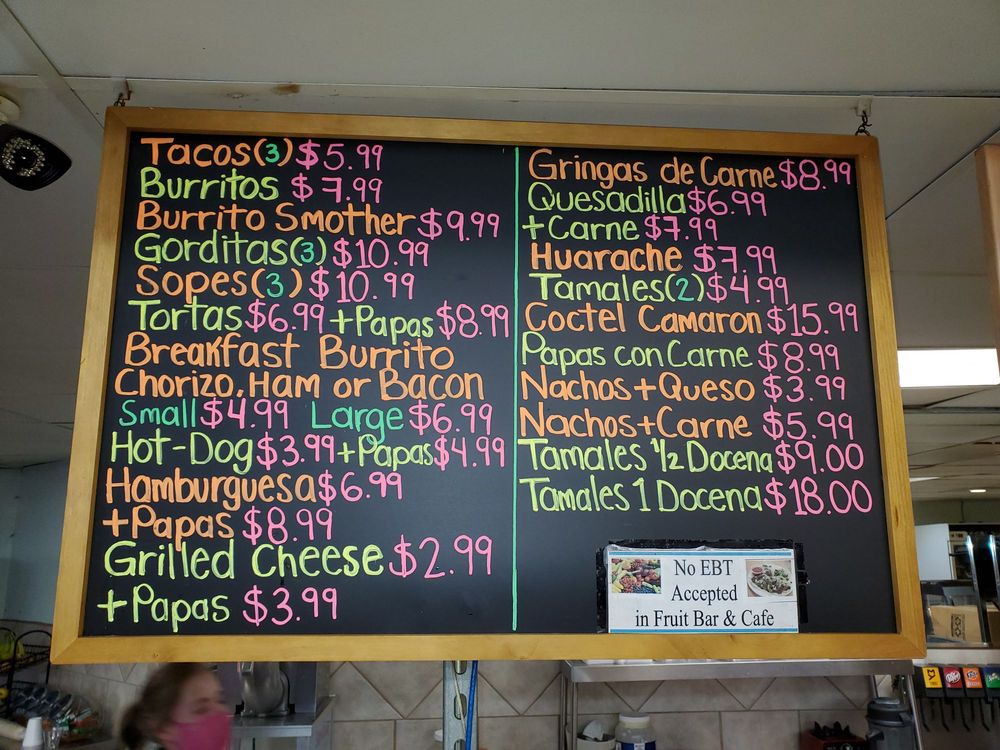 Tacos(3) $5.99
Burritos $7.99
Burrito Smother $9.99
Gorditas(3) $10.99
Sopes(3) $10.99
Tortas $6.99 +Papas $8.99
Breakfast Burrito
Chorizo, Ham or Bacon
Small $4.99 Large $6.99
Hot-Dog $3.99 +Papas $4.99
Hamburguesa $6.99
+Papas $8.99
Grilled Cheese $2.99
+Papas $3.99
Gringas de Carne $8.99
Quesadilla $6.99
+Carne $7.99
Huarache $7.99
Tamales(2) $4.99
Coctel Camaron $15.99
Papas con Carne $8.99
Nachos+Queso $3.99
Nachos+Carne $5.99
Tamales 1/2 Docena $9.00
Tamales 1 Docena $18.00
No EBT
Accepted
in Fruit Bar & Cafe